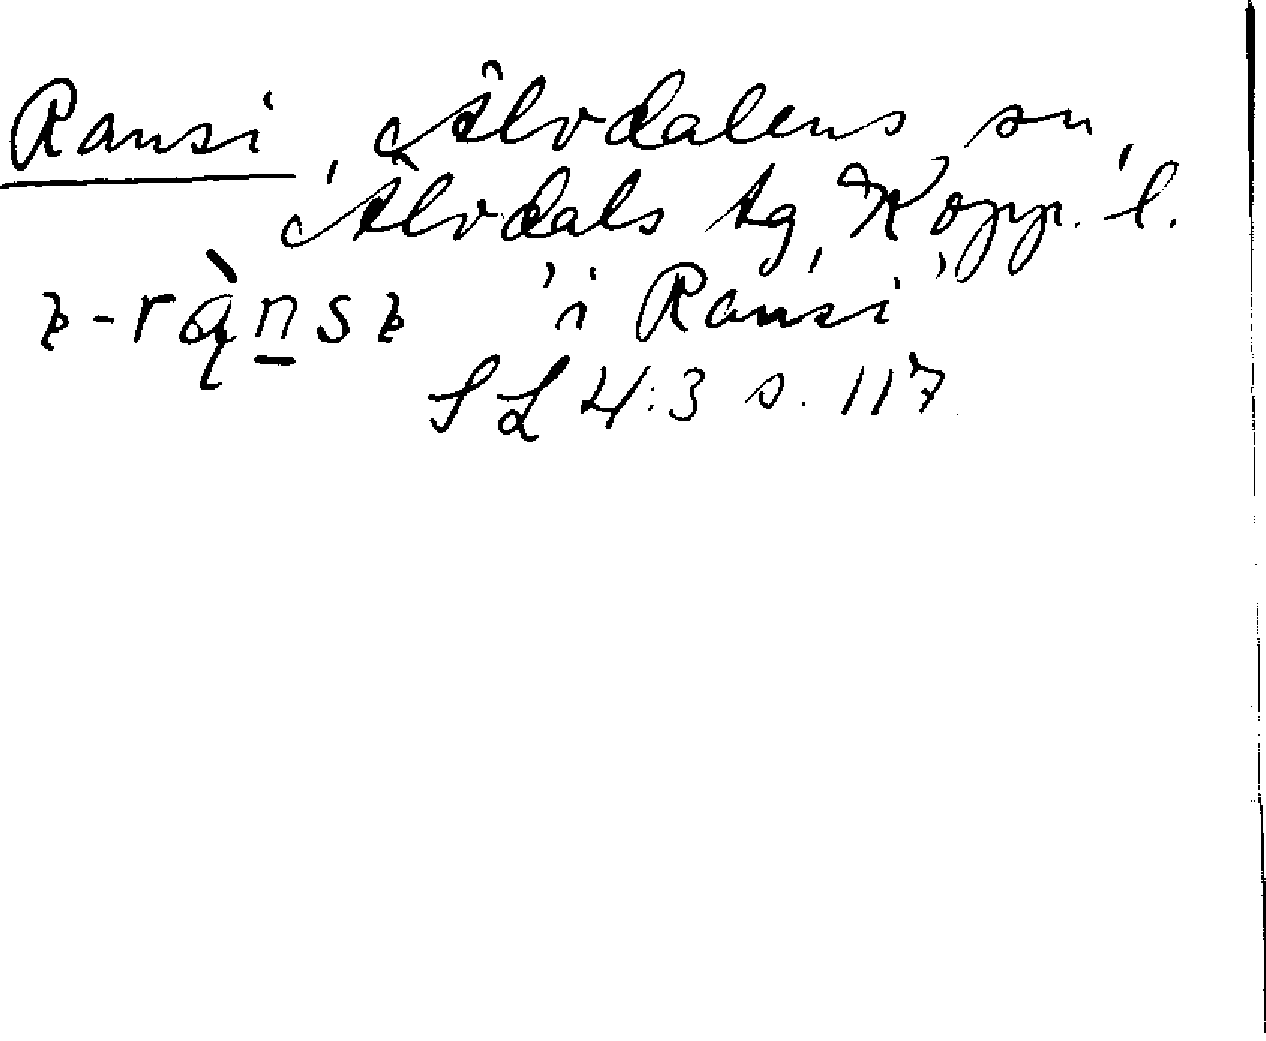 Ransi, Älvdalens sn,
Älvdals tg, Kopp. l.
ᵻ-rą̀n̠sᵻ 'i Ransi'
SL 4:3 s. 117